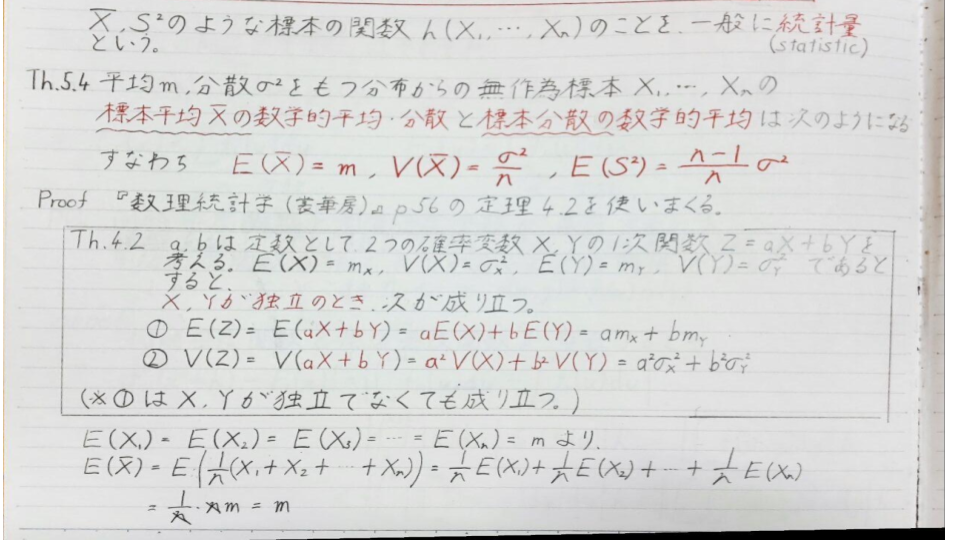 X̄, S²のような標本の関数 h(X₁, …, Xₙ)のことを、一般に統計量
という。
(statistic)
Th.5.4 平均m, 分散σ²をもつ分布からの無作為標本 X₁, …, Xₙの
標本平均X̄の数学的平均・分散と標本分散の数学的平均は次のようになる
すなわち E(X̄) = m , V(X̄) = σ²/n , E(S²) = (n-1)/n σ²
Proof 『数理統計学(裳華房)』p56の定理4.2を使いまくる。
Th.4.2 a, bは定数として2つの確率変数X, Yの1次関数 Z = aX + bYを
考える。E(X) = m_X, V(X) = σ_X², E(Y) = m_Y, V(Y) = σ_Y² であると
すると、
X, Yが独立のとき、次が成り立つ。
① E(Z) = E(aX + bY) = aE(X) + bE(Y) = am_X + bm_Y
② V(Z) = V(aX + bY) = a²V(X) + b²V(Y) = a²σ_X² + b²σ_Y²
(※①はX, Yが独立でなくても成り立つ。)
E(X₁) = E(X₂) = E(X₃) = … = E(Xₙ) = m より、
E(X̄) = E(1/n(X₁ + X₂ + … + Xₙ)) = 1/n E(X₁) + 1/n E(X₂) + … + 1/n E(Xₙ)
= 1/n · nm = m